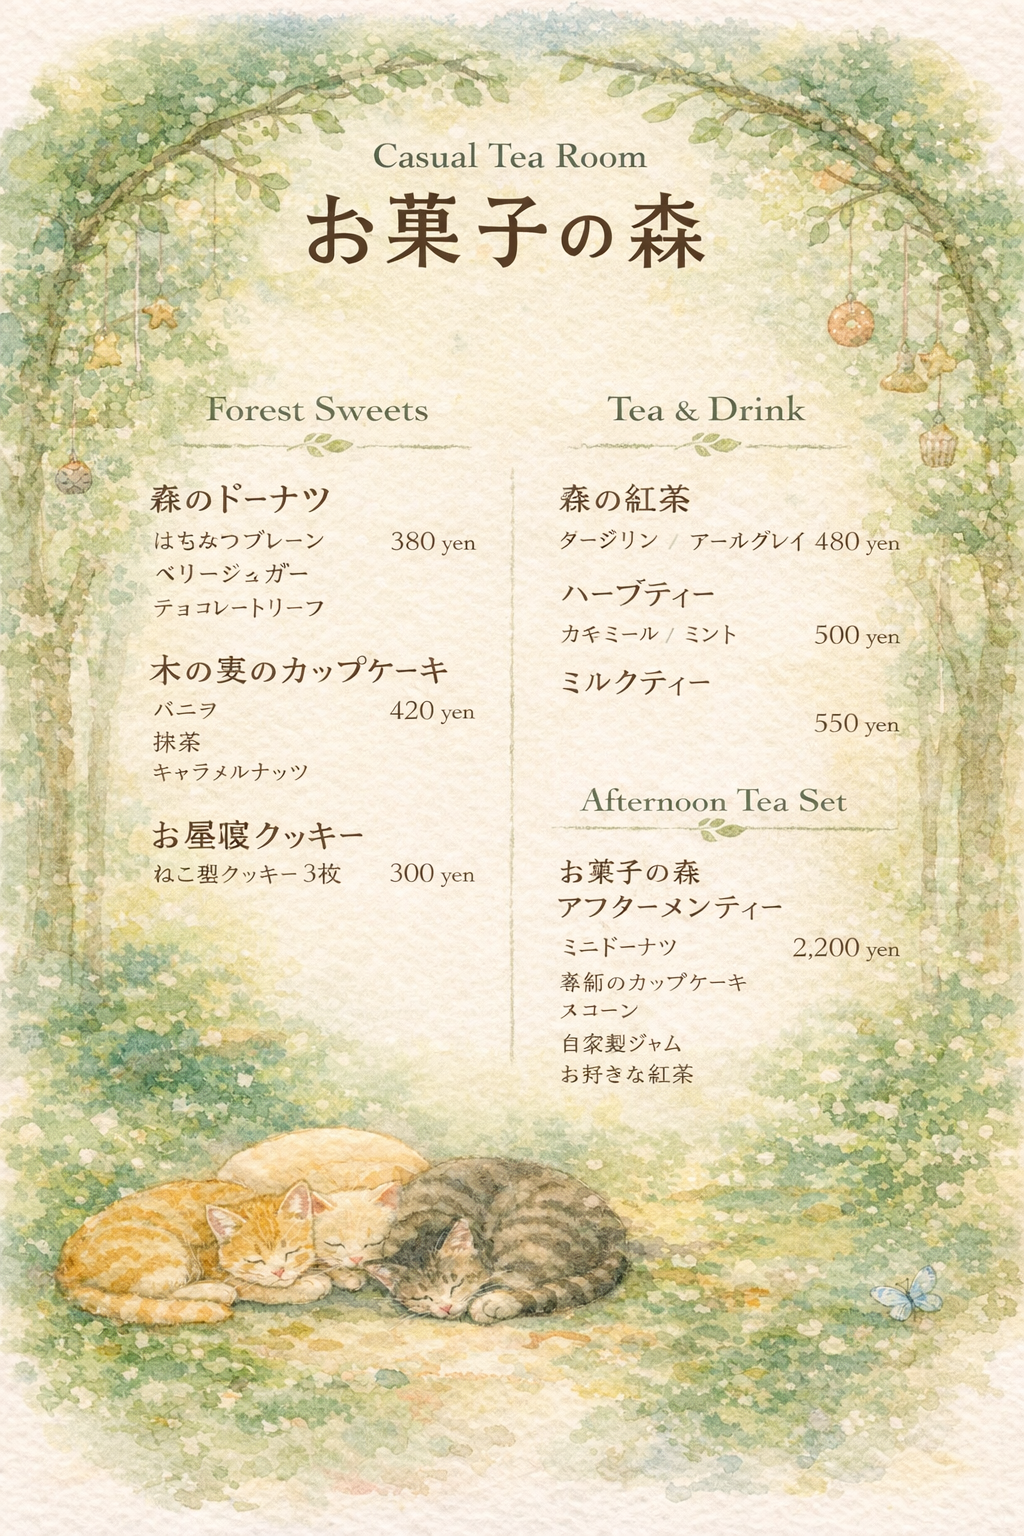 Casual Tea Room
お菓子の森
Forest Sweets
森のドーナツ
はちみつプレーン 380 yen
ベリージュガー
テョコレートリーフ
木の実のカップケーキ
バニヲ 420 yen
抹茶
キャラメルナッツ
お屋寝クッキー
ねこ型クッキー 3枚 300 yen
Tea & Drink
森の紅茶
タージリン / アールグレイ 480 yen
ハーブティー
カキミール / ミント 500 yen
ミルクティー
550 yen
Afternoon Tea Set
お菓子の森
アフターメンティー
ミニドーナツ 2,200 yen
のカップケーキ
スコーン
自家製ジャム
お好きな紅茶